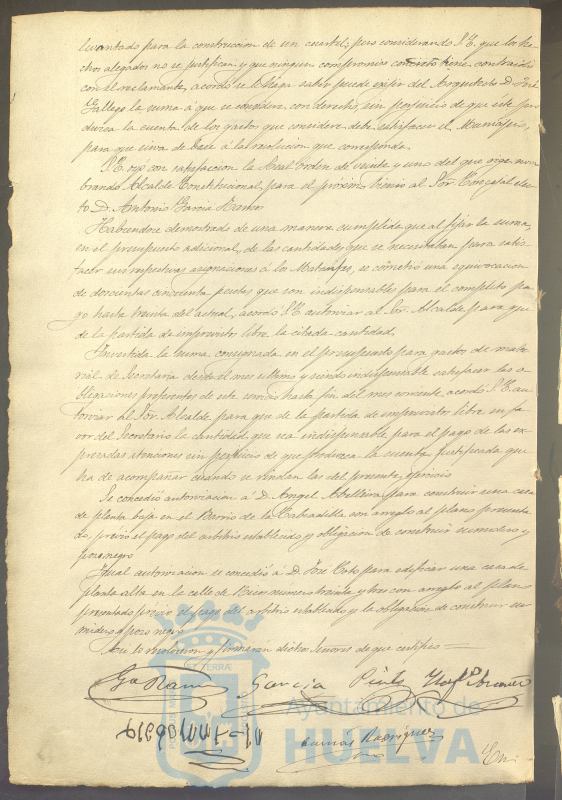 levantado para la construccion de un cuartel; pero considerando S.E. que los he-
chos alegados no se justifican y que ningun compromiso concreto tiene contraido
con el reclamante, acordó se le haga saber puede exijir del Arquitecto D. José
Gallego la suma á que se considere con derecho, sin perjuicio de que este pro-
duzca la cuenta de los gastos que considere debe satisfacer el Municipio,
para que sirva de base á la resolucion que corresponda.
S.E. oyó con satisfaccion la Real Orden de veinte y uno del que rige nom-
brando Alcalde Constitucional, para el próximo bienio al Sor. Concejal elec-
to D. Antonio Garcia Ramos
Habiendose demostrado de una manera cumplida que al fijar la suma,
en el presupuesto adicional, de las cantidades que se necesitaban para satis-
facer sus respectivas asignaciones á los se cometió una equivocacion
de doscientas cincuenta pesetas que son indispensables para el completo pa-
go hasta treinta del actual, acordó S.E. autorizar al Sor. Alcalde para que
de la partida de imprevistos libre la citada cantidad.
Invertida la suma consignada en el presupuesto para gastos de mate-
rial de Secretaria desde el mes último y siendo indispensable satisfacer las o-
bligaciones preferentes de este servicio hasta fin del mes corriente acordó S.E. au-
torizar al Sor. Alcalde para que de la partida de imprevistos libre en fa-
vor del Secretario la cantidad que sea indispensable para el pago de las ex-
presadas atenciones sin perjuicio de que produzca la cuenta justificada que
ha de acompañar cuando se rindan las del presente ejercicio
Se concedió autorizacion á D. Angel Abellera para construir una casa
de planta baja en el Barrio de la con arreglo al plano presenta-
do, prévio el pago del arbitrio establecido y obligacion de construir sumidero y
pozo negro
Igual autorizacion se concedió á D. José Coto para edificar una casa de
planta alta en la calle de numero treinta y tres con arreglo al plano
presentado previo el pago del arbitrio establecido y la obligacion de construir su-
midero y pozo negro
Asi lo resolvieron y firmarán dichos Señores de que certifico =
Ga Ramos Garcia Pinto
Tomás Rodriguez
Ayuntamiento de
HUELVA